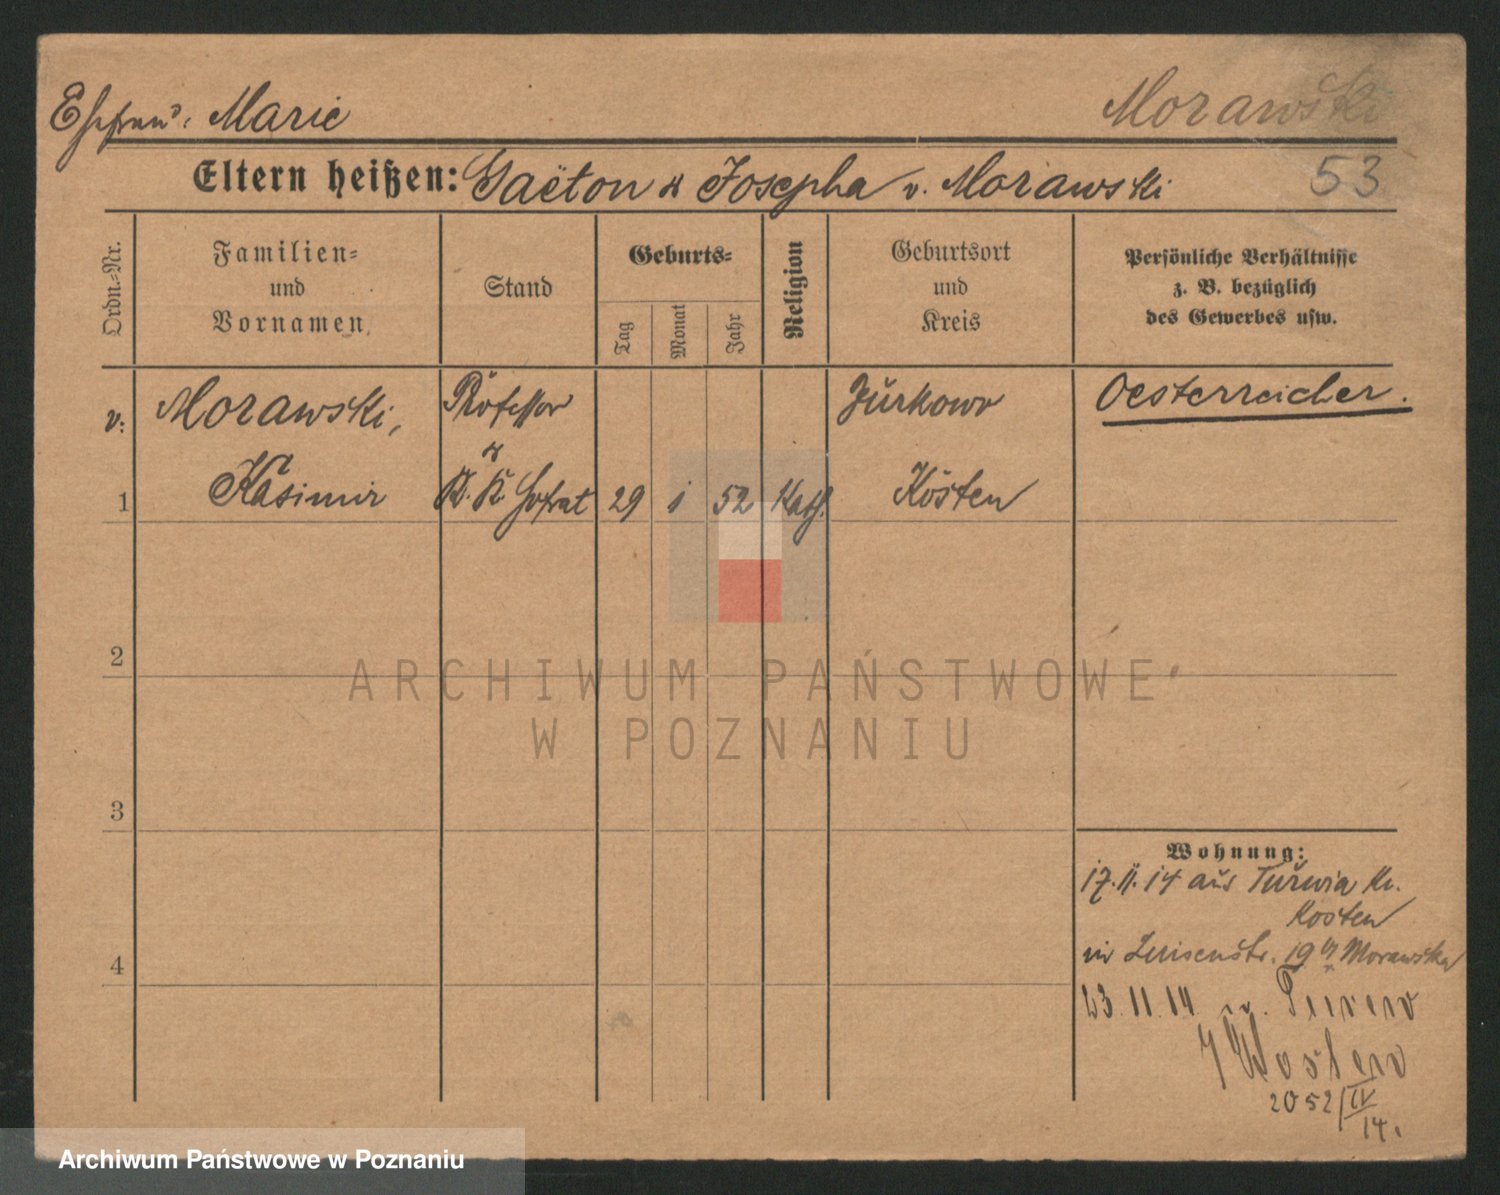 Ehefrau: Marie
Morawski
Eltern heißen: Gaëton & Josepha v. Morawski
53
Ordn.-Nr.
Familien-
und
Vornamen
Stand
Geburts-
Tag
Monat
Jahr
Religion
Geburtsort
und
Kreis
Persönliche Verhältnisse
z. B. bezüglich
des Gewerbes usw.
v: Morawski,
Kasimir
Professor
&
K. K. Hofrat
1
29
1
52
Kath.
Jurkowo
Kosten
Oesterreicher.
2
3
4
Wohnung:
17.11.14 aus Turwia Kr.
Kosten
in Luisenstr. 19 Morawska
23.11.14
Kosten
2052/IV
14.
ARCHIWUM PAŃSTWOWE
W POZNANIU
Archiwum Państwowe w Poznaniu